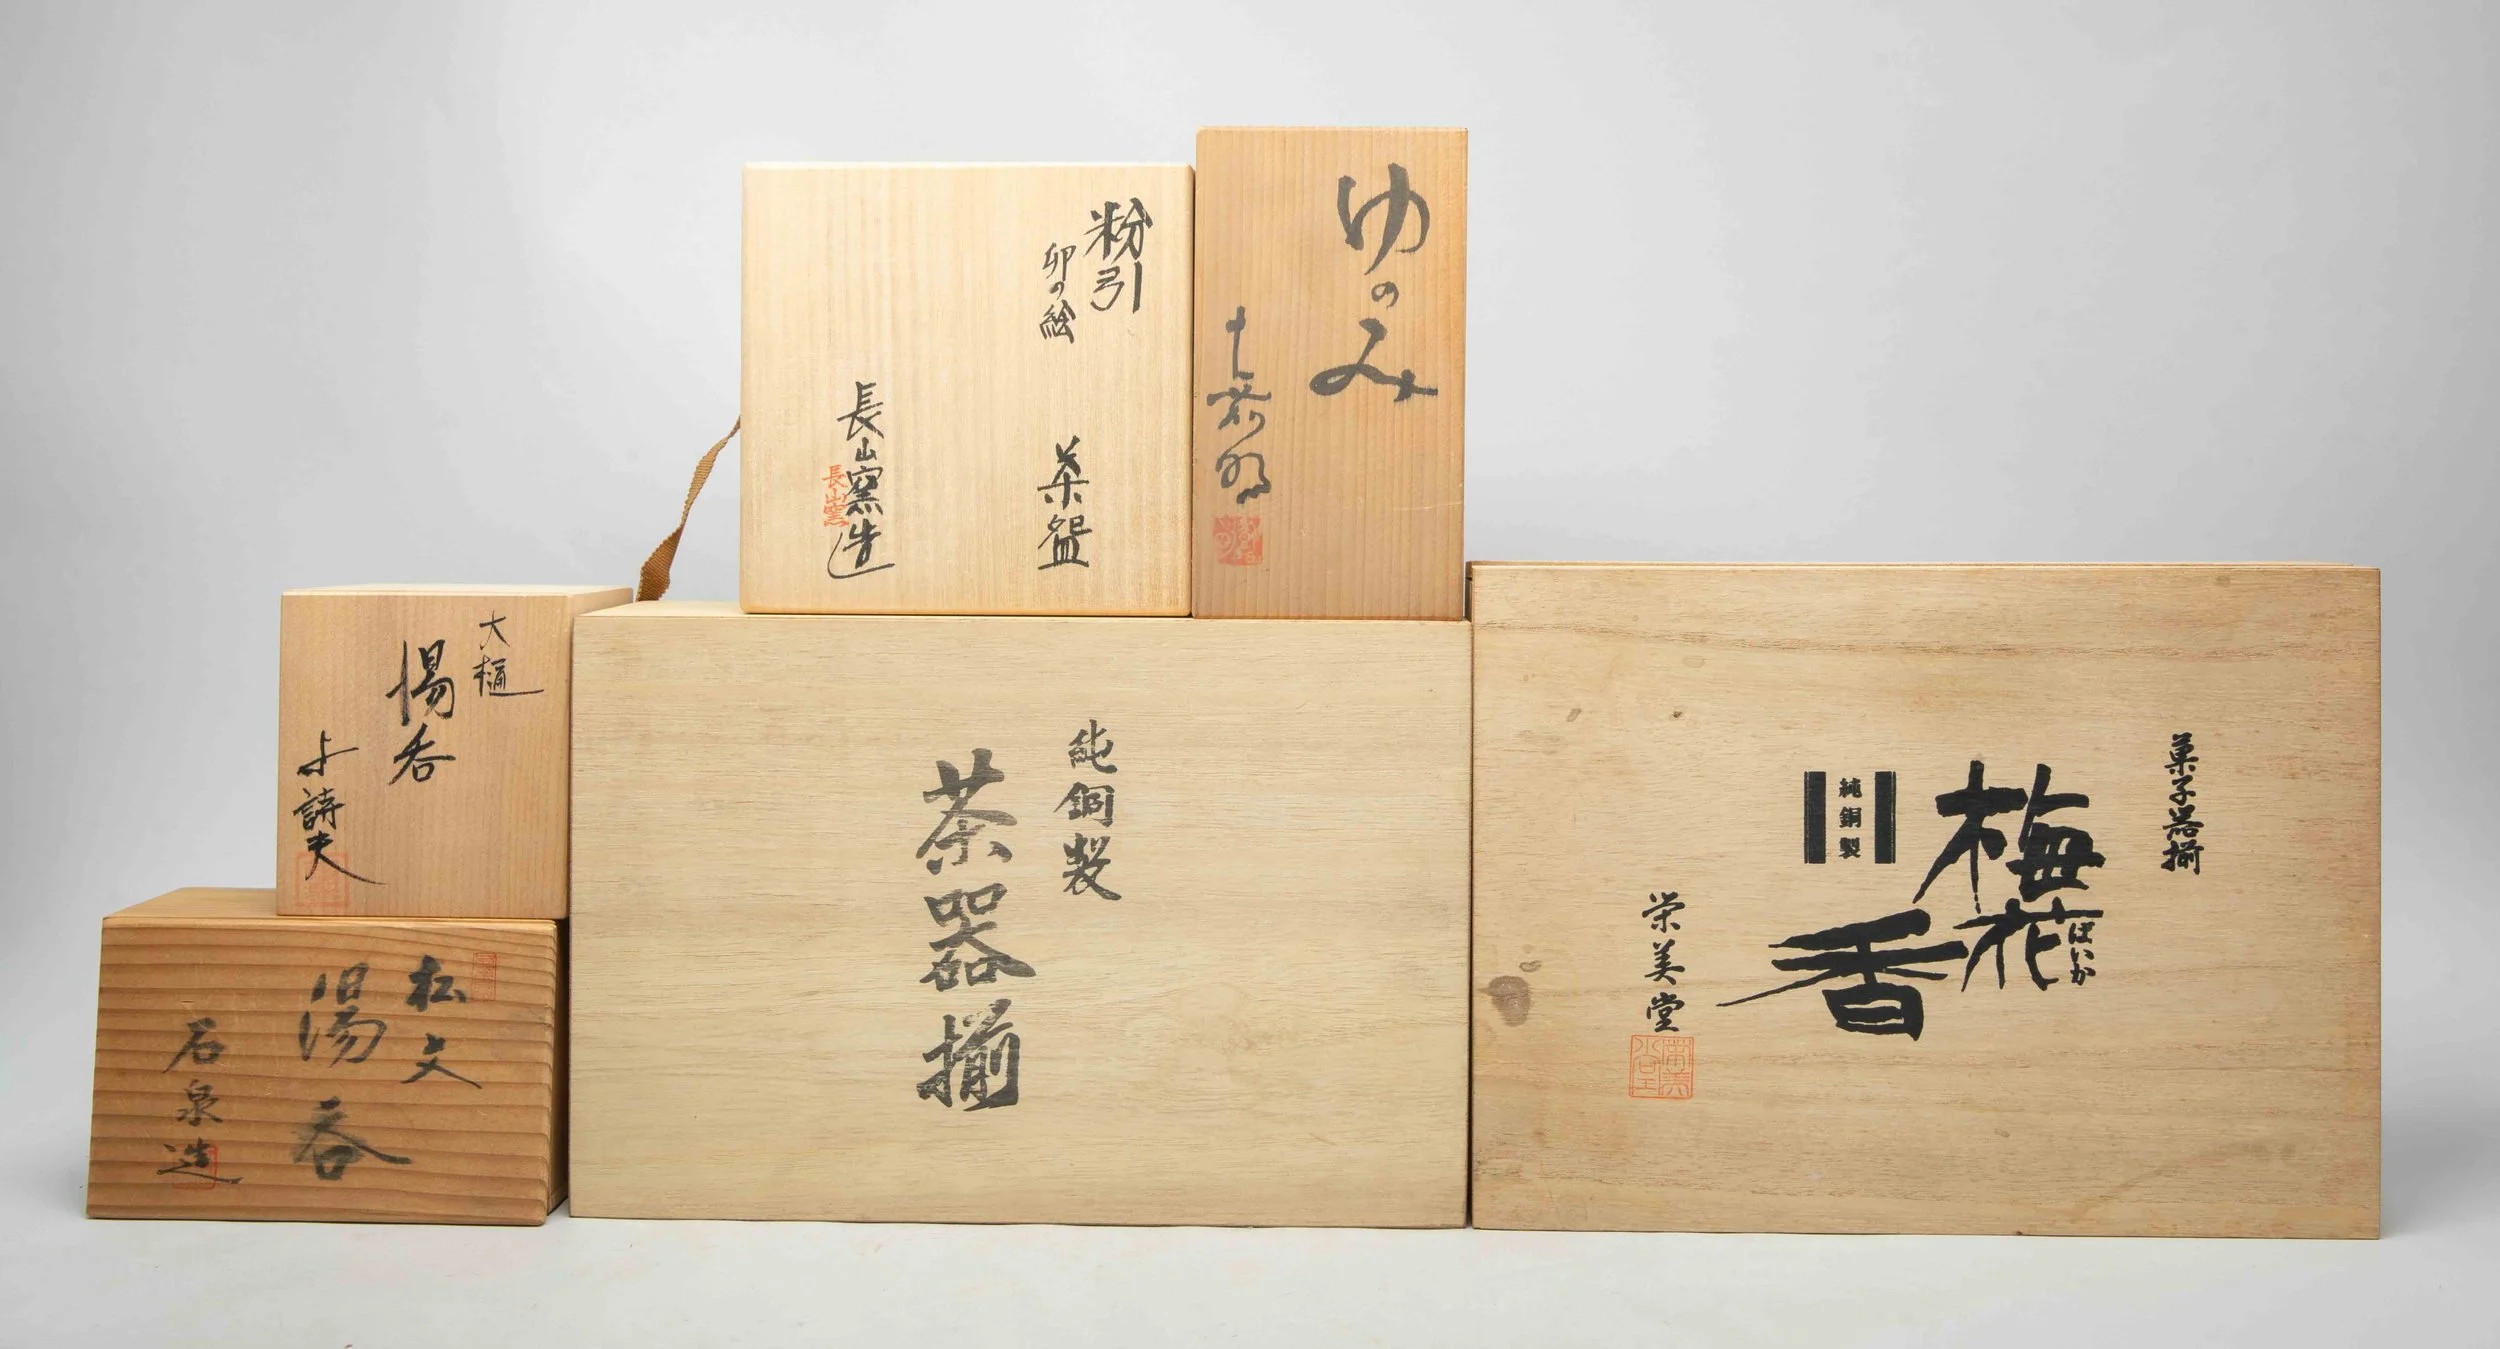 粉引
卯の絵
茶盌
長山窯造
長山窯
ゆのみ
大樋
湯呑
松文
湯呑
石泉造
純銅製
茶器揃
菓子器揃
梅花香
ばいか
純銅製
栄美堂